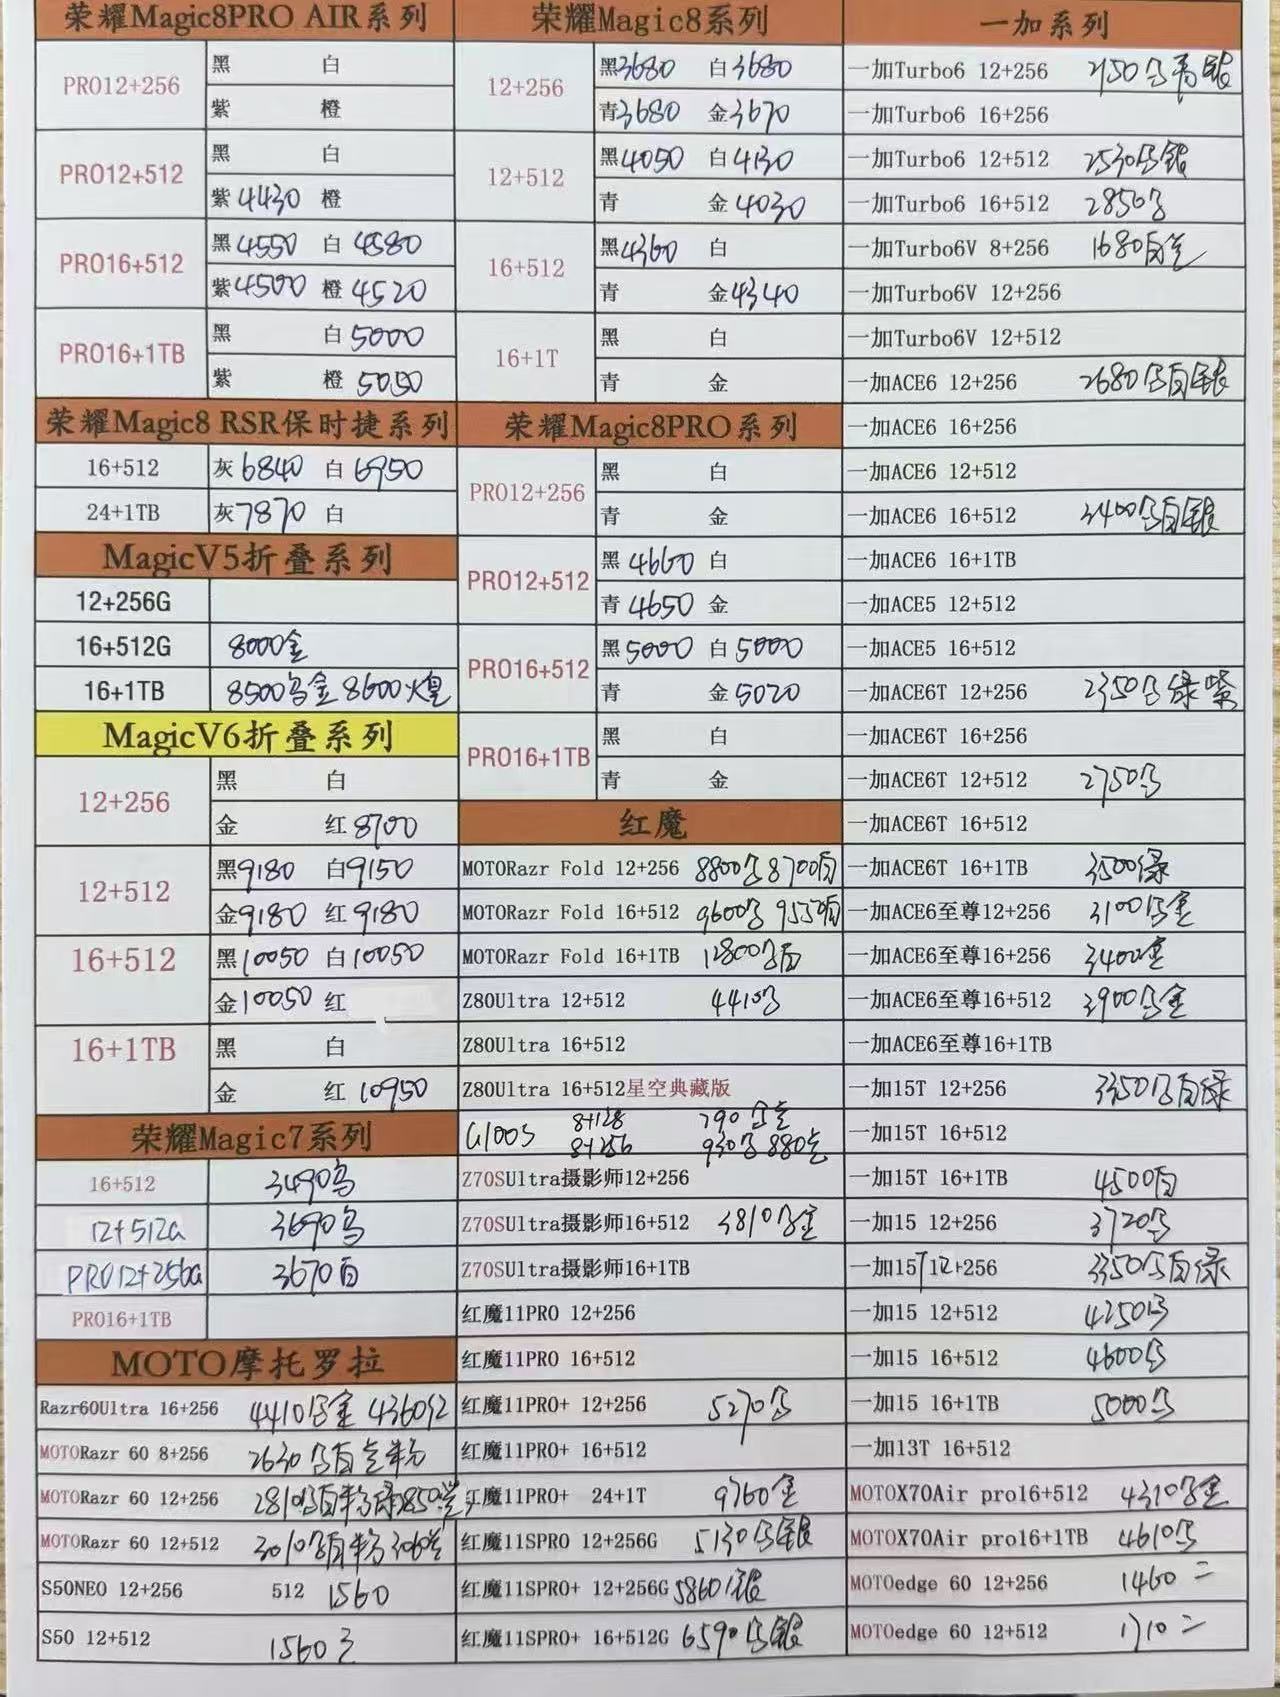 荣耀Magic8PRO AIR系列
PRO12+256
黑 白
紫 橙
PRO12+512
黑 白
紫 4430 橙
PRO16+512
黑 4550 白 4580
紫 4500 橙 4520
PRO16+1TB
黑 白 5000
紫 橙 5050
荣耀Magic8 RSR保时捷系列
16+512 灰 6840 白 6950
24+1TB 灰 7870 白
MagicV5折叠系列
12+256G
16+512G 8000金
16+1TB 8500乌金 8600火皇
MagicV6折叠系列
12+256
黑 白
金 红 8700
12+512
黑 9180 白 9150
金 9180 红 9180
16+512
黑 10050 白 10050
金 10050 红
16+1TB
黑 白
金 红 10950
荣耀Magic7系列
16+512 3490乌
12+512G 3690乌
PRO12+256G 3670白
PRO16+1TB
MOTO摩托罗拉
Razr60Ultra 16+256 4410乌金 4360红
MOTORazr 60 8+256 2630
MOTORazr 60 12+256 2810
MOTORazr 60 12+512 3010
S50NEO 12+256 512 1560
S50 12+512 1560
荣耀Magic8系列
12+256
黑 3680 白 3680
青 3680 金 3670
12+512
黑 4050 白 4130
青 金 4030
16+512
黑 4360 白
青 金 4340
16+1T
黑 白
青 金
荣耀Magic8PRO系列
PRO12+256
黑 白
青 金
PRO12+512
黑 4660 白
青 4650 金
PRO16+512
黑 5000 白 5000
青 金 5020
PRO16+1TB
黑 白
青 金
红魔
MOTORazr Fold 12+256 8800乌 8700白
MOTORazr Fold 16+512 9600乌 9550白
MOTORazr Fold 16+1TB 12800乌白
Z80Ultra 12+512 4410乌
Z80Ultra 16+512
Z80Ultra 16+512星空典藏版
G100S 8+128 790
8+256 930乌 880
Z70SUltra摄影师12+256
Z70SUltra摄影师16+512 3810乌金
Z70SUltra摄影师16+1TB
红魔11PRO 12+256
红魔11PRO 16+512
红魔11PRO+ 12+256 5270乌
红魔11PRO+ 16+512
红魔11PRO+ 24+1T 9760金
红魔11SPRO 12+256G 5130乌银
红魔11SPRO+ 12+256G 5860银
红魔11SPRO+ 16+512G 6590乌银
一加系列
一加Turbo6 12+256 2150乌青银
一加Turbo6 16+256
一加Turbo6 12+512 2530乌银
一加Turbo6 16+512 2850乌
一加Turbo6V 8+256 1680白
一加Turbo6V 12+256
一加Turbo6V 12+512
一加ACE6 12+256 2680乌白银
一加ACE6 16+256
一加ACE6 12+512
一加ACE6 16+512 3400乌白银
一加ACE6 16+1TB
一加ACE5 12+512
一加ACE5 16+512
一加ACE6T 12+256 2350乌绿紫
一加ACE6T 16+256
一加ACE6T 12+512 2750乌
一加ACE6T 16+512
一加ACE6T 16+1TB 3500绿
一加ACE6至尊12+256 3100乌金
一加ACE6至尊16+256 3400金
一加ACE6至尊16+512 3900乌金
一加ACE6至尊16+1TB
一加15T 12+256 3350乌白绿
一加15T 16+512
一加15T 16+1TB 4500白
一加15 12+256 3720乌
一加15T12+256 3350乌白绿
一加15 12+512 4250乌
一加15 16+512 4600乌
一加15 16+1TB 5000乌
一加13T 16+512
MOTOX70Air pro16+512 4310乌金
MOTOX70Air pro16+1TB 4610乌
MOTOedge 60 12+256 1460 二
MOTOedge 60 12+512 1710 二